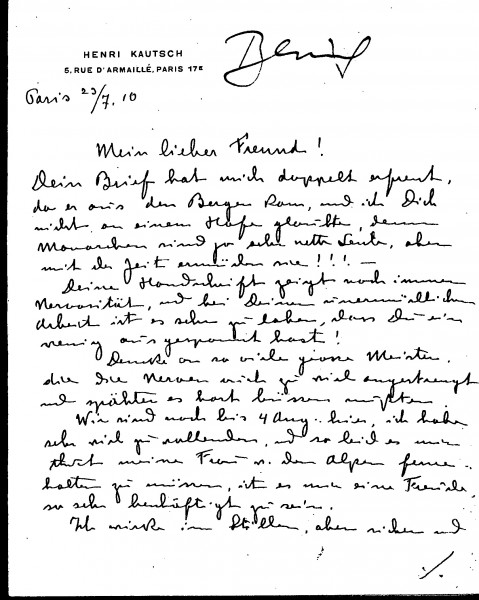 HENRI KAUTSCH
5, RUE D'ARMAILLÉ, PARIS 17E
Paris 23/7. 10
Mein lieber Freund!
Dein Brief hat mich doppelt erfreut,
da er aus den Bergen kam, und ich Dich
nicht an einem Hofe glaubte, denn
Monarchen sind ja sehr nette Leute, aber
mit der Zeit ermüden sie!!! —
Deine Handschrift zeigt noch immer
Nervosität, und bei Deiner unermüdlichen
Arbeit ist es sehr zu loben, dass Du ein
wenig ausgespannt hast!
Denke an so viele grosse Meister,
die die Nerven sich zu viel angestrengt
und späther es hart büssen mussten.
Wir sind noch bis 4 Aug. hier, ich habe
sehr viel zu vollenden, und so leid es mir
thut meine Frau v. den Alpen ferne
halten zu müssen, ist es mir eine Freude,
so sehr beschäftigt zu sein.
Ich wirke im Stillen, aber sicher und
./.